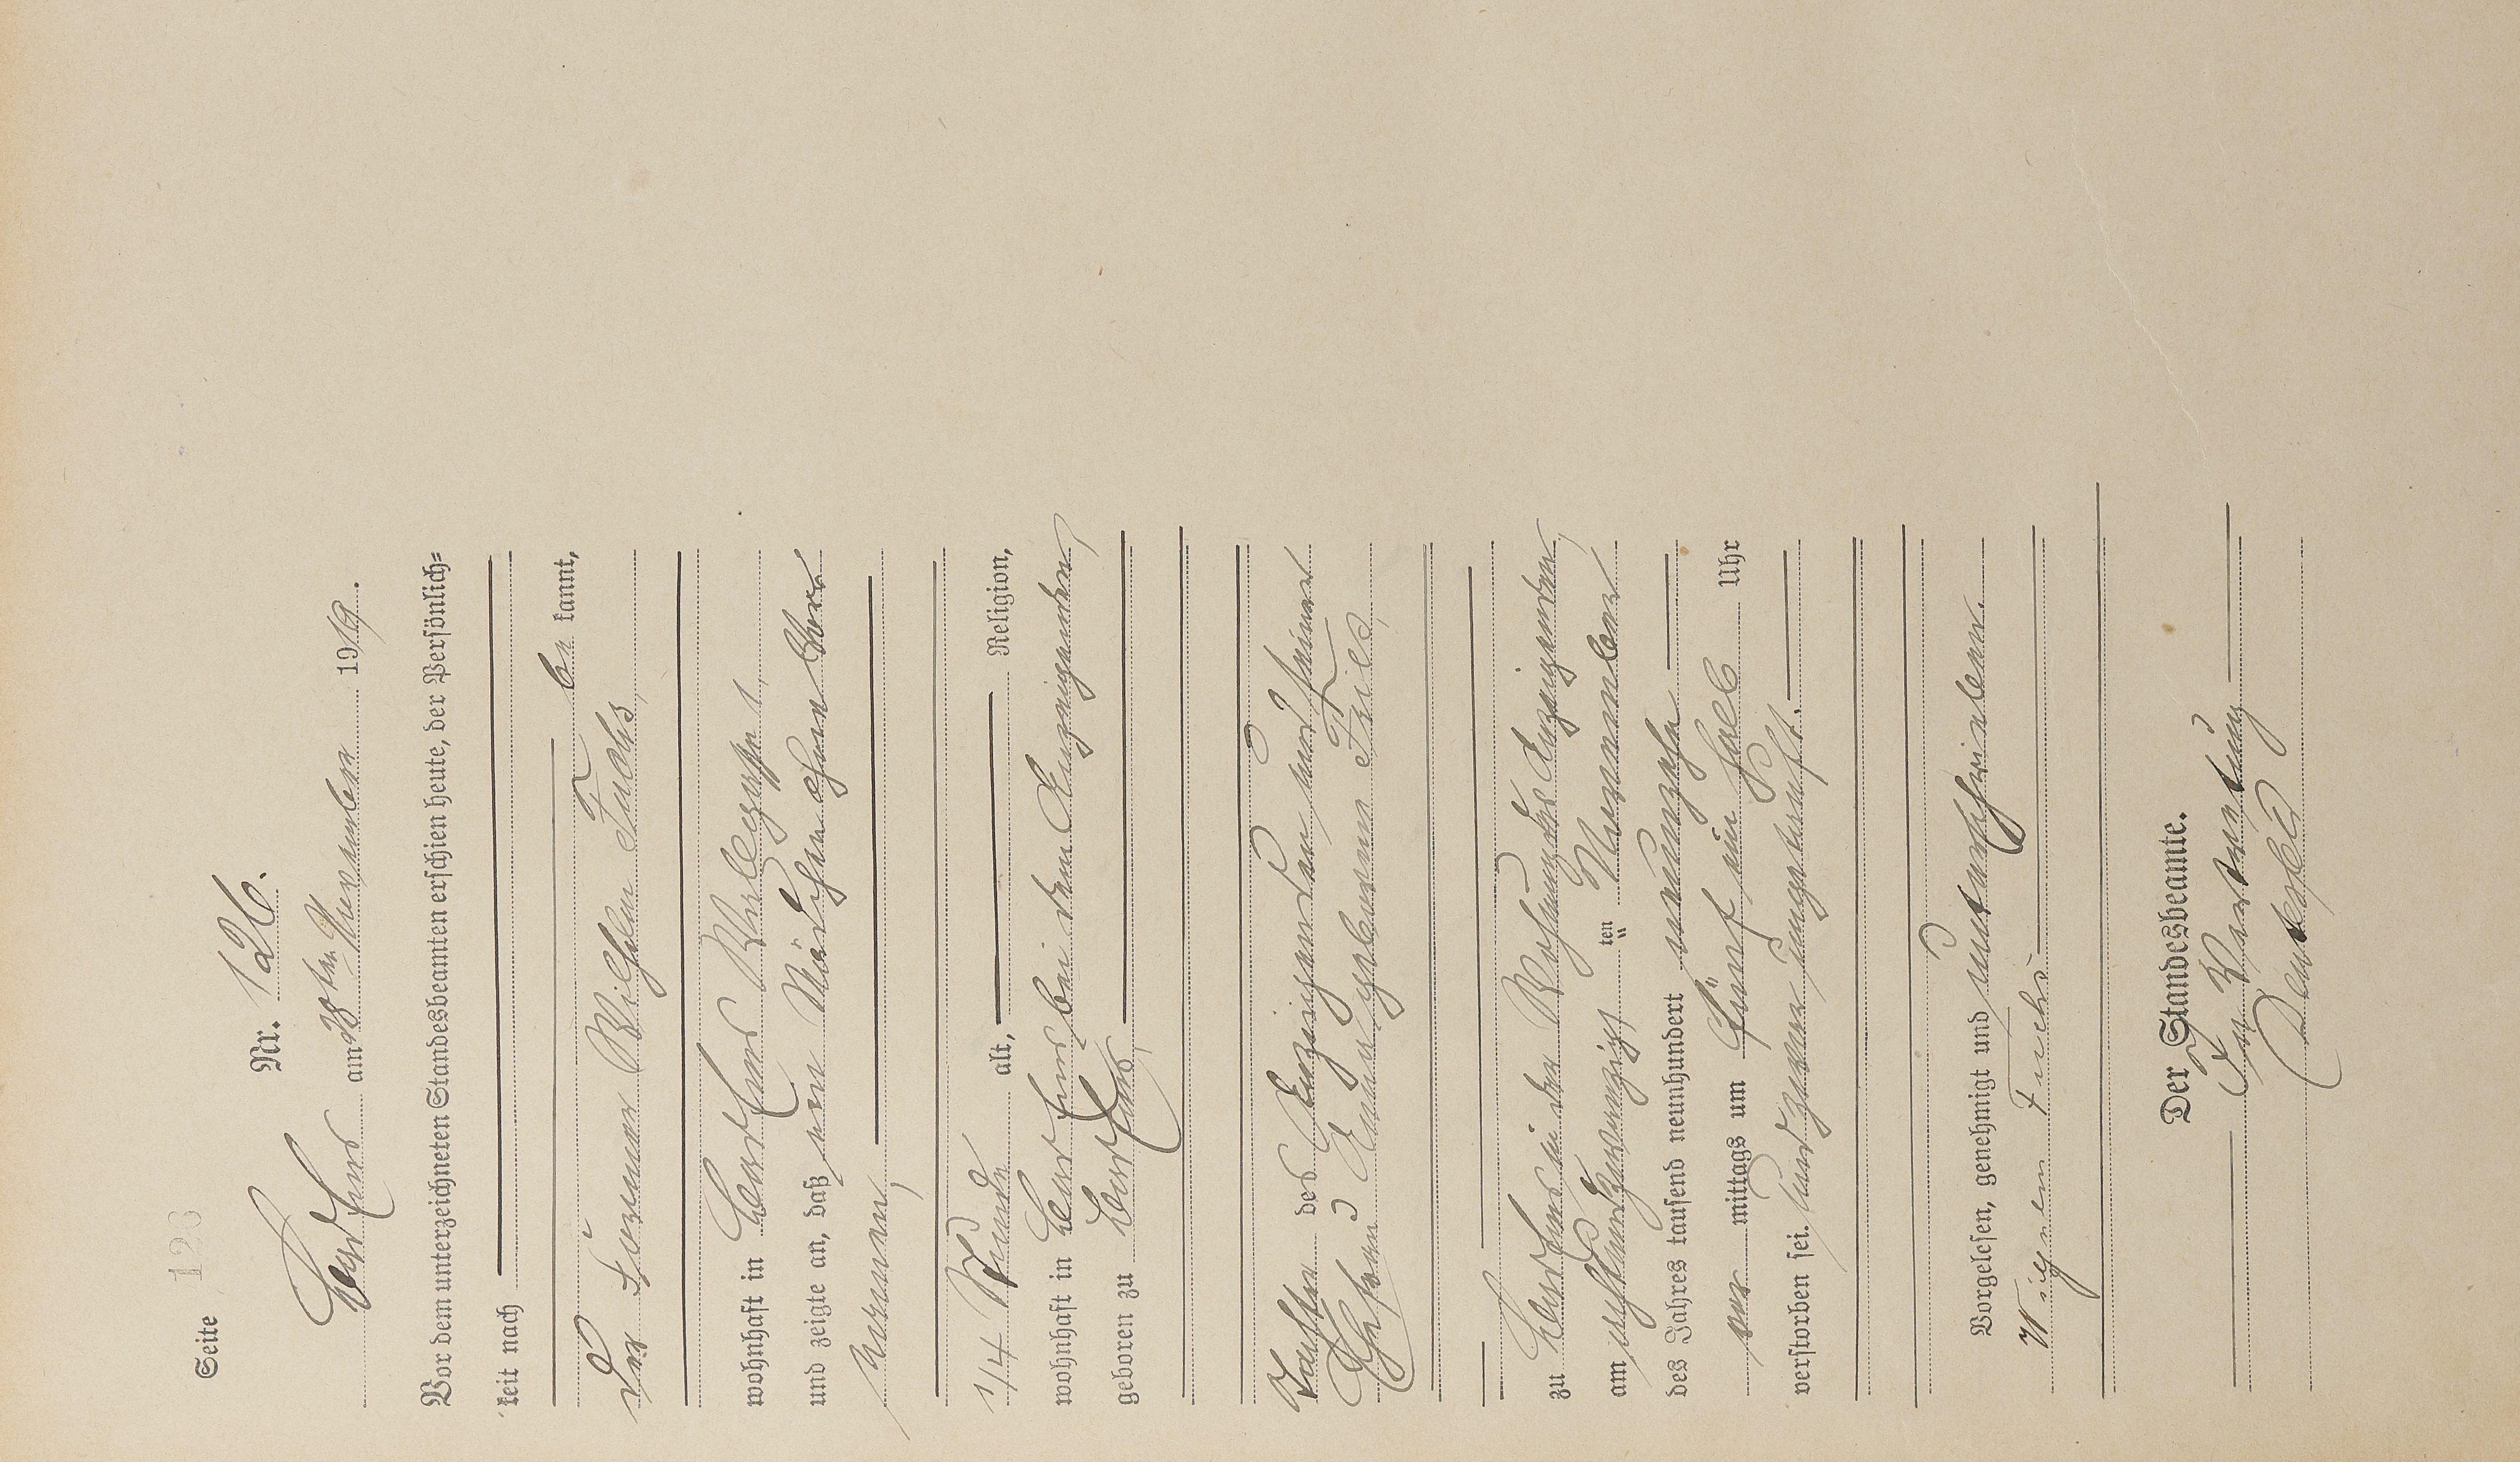 Seite 123
Nr. 126.
am 28ten November 1919.
Vor dem unterzeichneten Standesbeamten erschien heute, der Persönlich-
keit nach
be kannt,
der Former Wilhelm Fuchs,
wohnhaft in
und zeigte an, daß ein Mädchen ohne Vor-
namen,
1/4 Stunde alt, Religion,
wohnhaft in bei dem Anzeigenden,
geboren zu
Tochter des Anzeigenden und seiner
Ehefrau Anna geborenen Feild,
zu in der Wohnung des Anzeigenden,
am achtundzwanzigsten ten November
des Jahres tausend neunhundert neunzehn
vor mittags um fünf ein halb Uhr
verstorben sei.
Vorgelesen, genehmigt und unterschrieben.
Wilhelm Fuchs
Der Standesbeamte.
In Vertretung